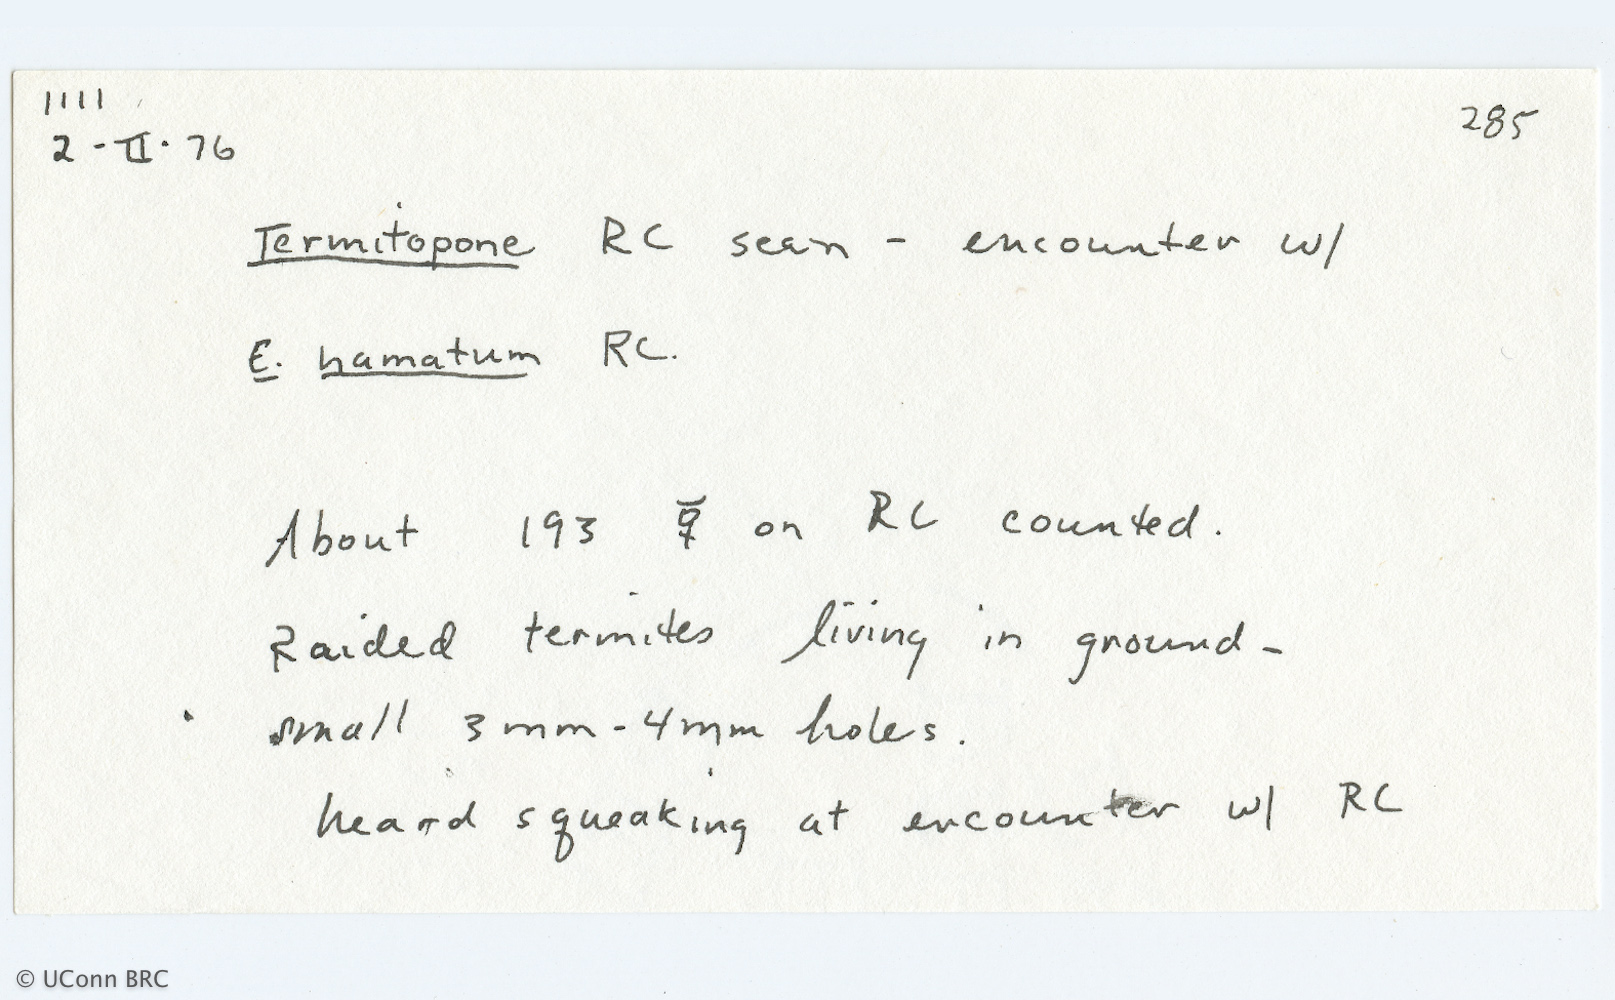 1111
2-II-76
285
Termitopone RC seen - encounter w/
E. hamatum RC.
About 193 ☿ on RC counted.
Raided termites living in ground-
small 3mm-4mm holes.
heard squeaking at encounter w/ RC
© UConn BRC